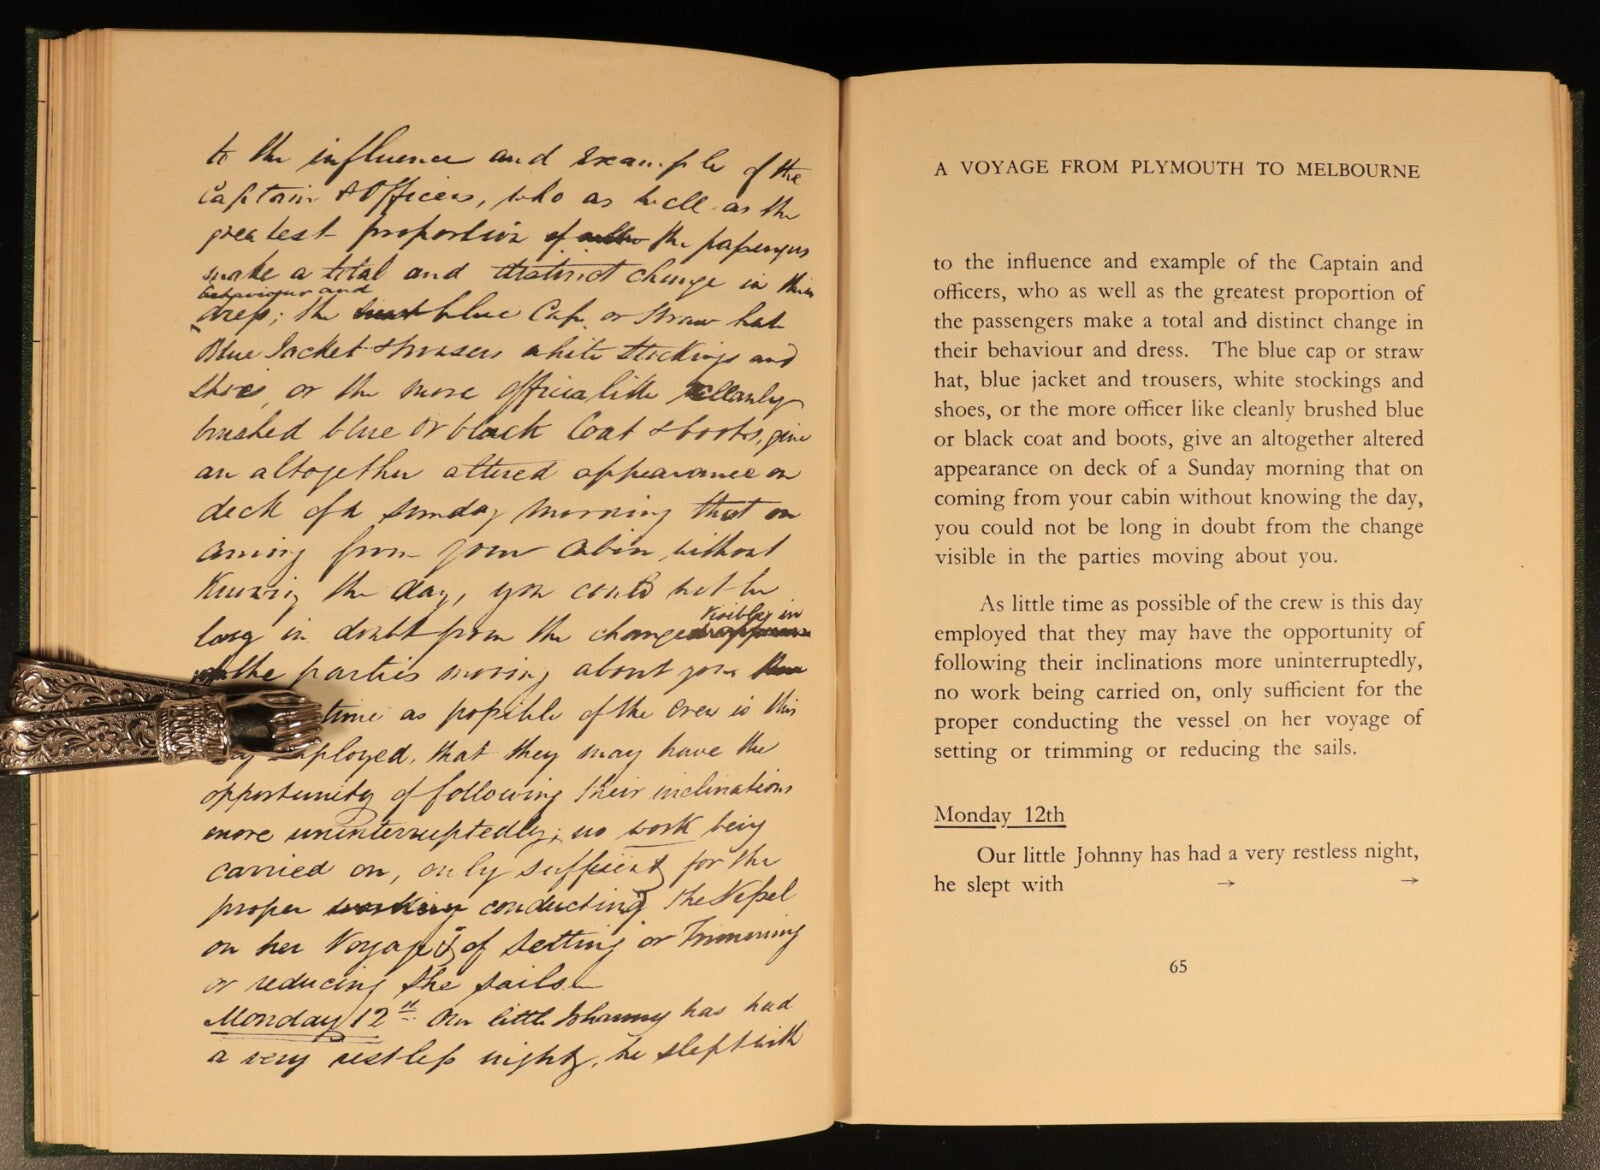 to the influence and example of the
Captain & Officers, who as well as the
greatest proportion of the passengers
make a total and distinct change in their
behaviour and
dress; the blue Cap or Straw hat
Blue Jacket & trousers white Stockings and
Shoes, or the more officer like cleanly
brushed blue or black Coat & boots, give
an altogether altered appearance on
deck of a Sunday morning that on
coming from your Cabin without
Knowing the day, you could not be
visibly in
long in doubt from the change
the parties moving about you
time as possible of the Crew is this
employed, that they may have the
opportunity of following their inclinations
more uninterruptedly; no work being
carried on, only sufficient for the
proper working conducting the Vessel
on her Voyage of Setting or Trimming
or reducing the sails.
Monday 12th Our little Johnny has had
a very restless night, he slept with
A VOYAGE FROM PLYMOUTH TO MELBOURNE
to the influence and example of the Captain and
officers, who as well as the greatest proportion of
the passengers make a total and distinct change in
their behaviour and dress. The blue cap or straw
hat, blue jacket and trousers, white stockings and
shoes, or the more officer like cleanly brushed blue
or black coat and boots, give an altogether altered
appearance on deck of a Sunday morning that on
coming from your cabin without knowing the day,
you could not be long in doubt from the change
visible in the parties moving about you.
As little time as possible of the crew is this day
employed that they may have the opportunity of
following their inclinations more uninterruptedly,
no work being carried on, only sufficient for the
proper conducting the vessel on her voyage of
setting or trimming or reducing the sails.
Monday 12th
Our little Johnny has had a very restless night,
he slept with → →
65